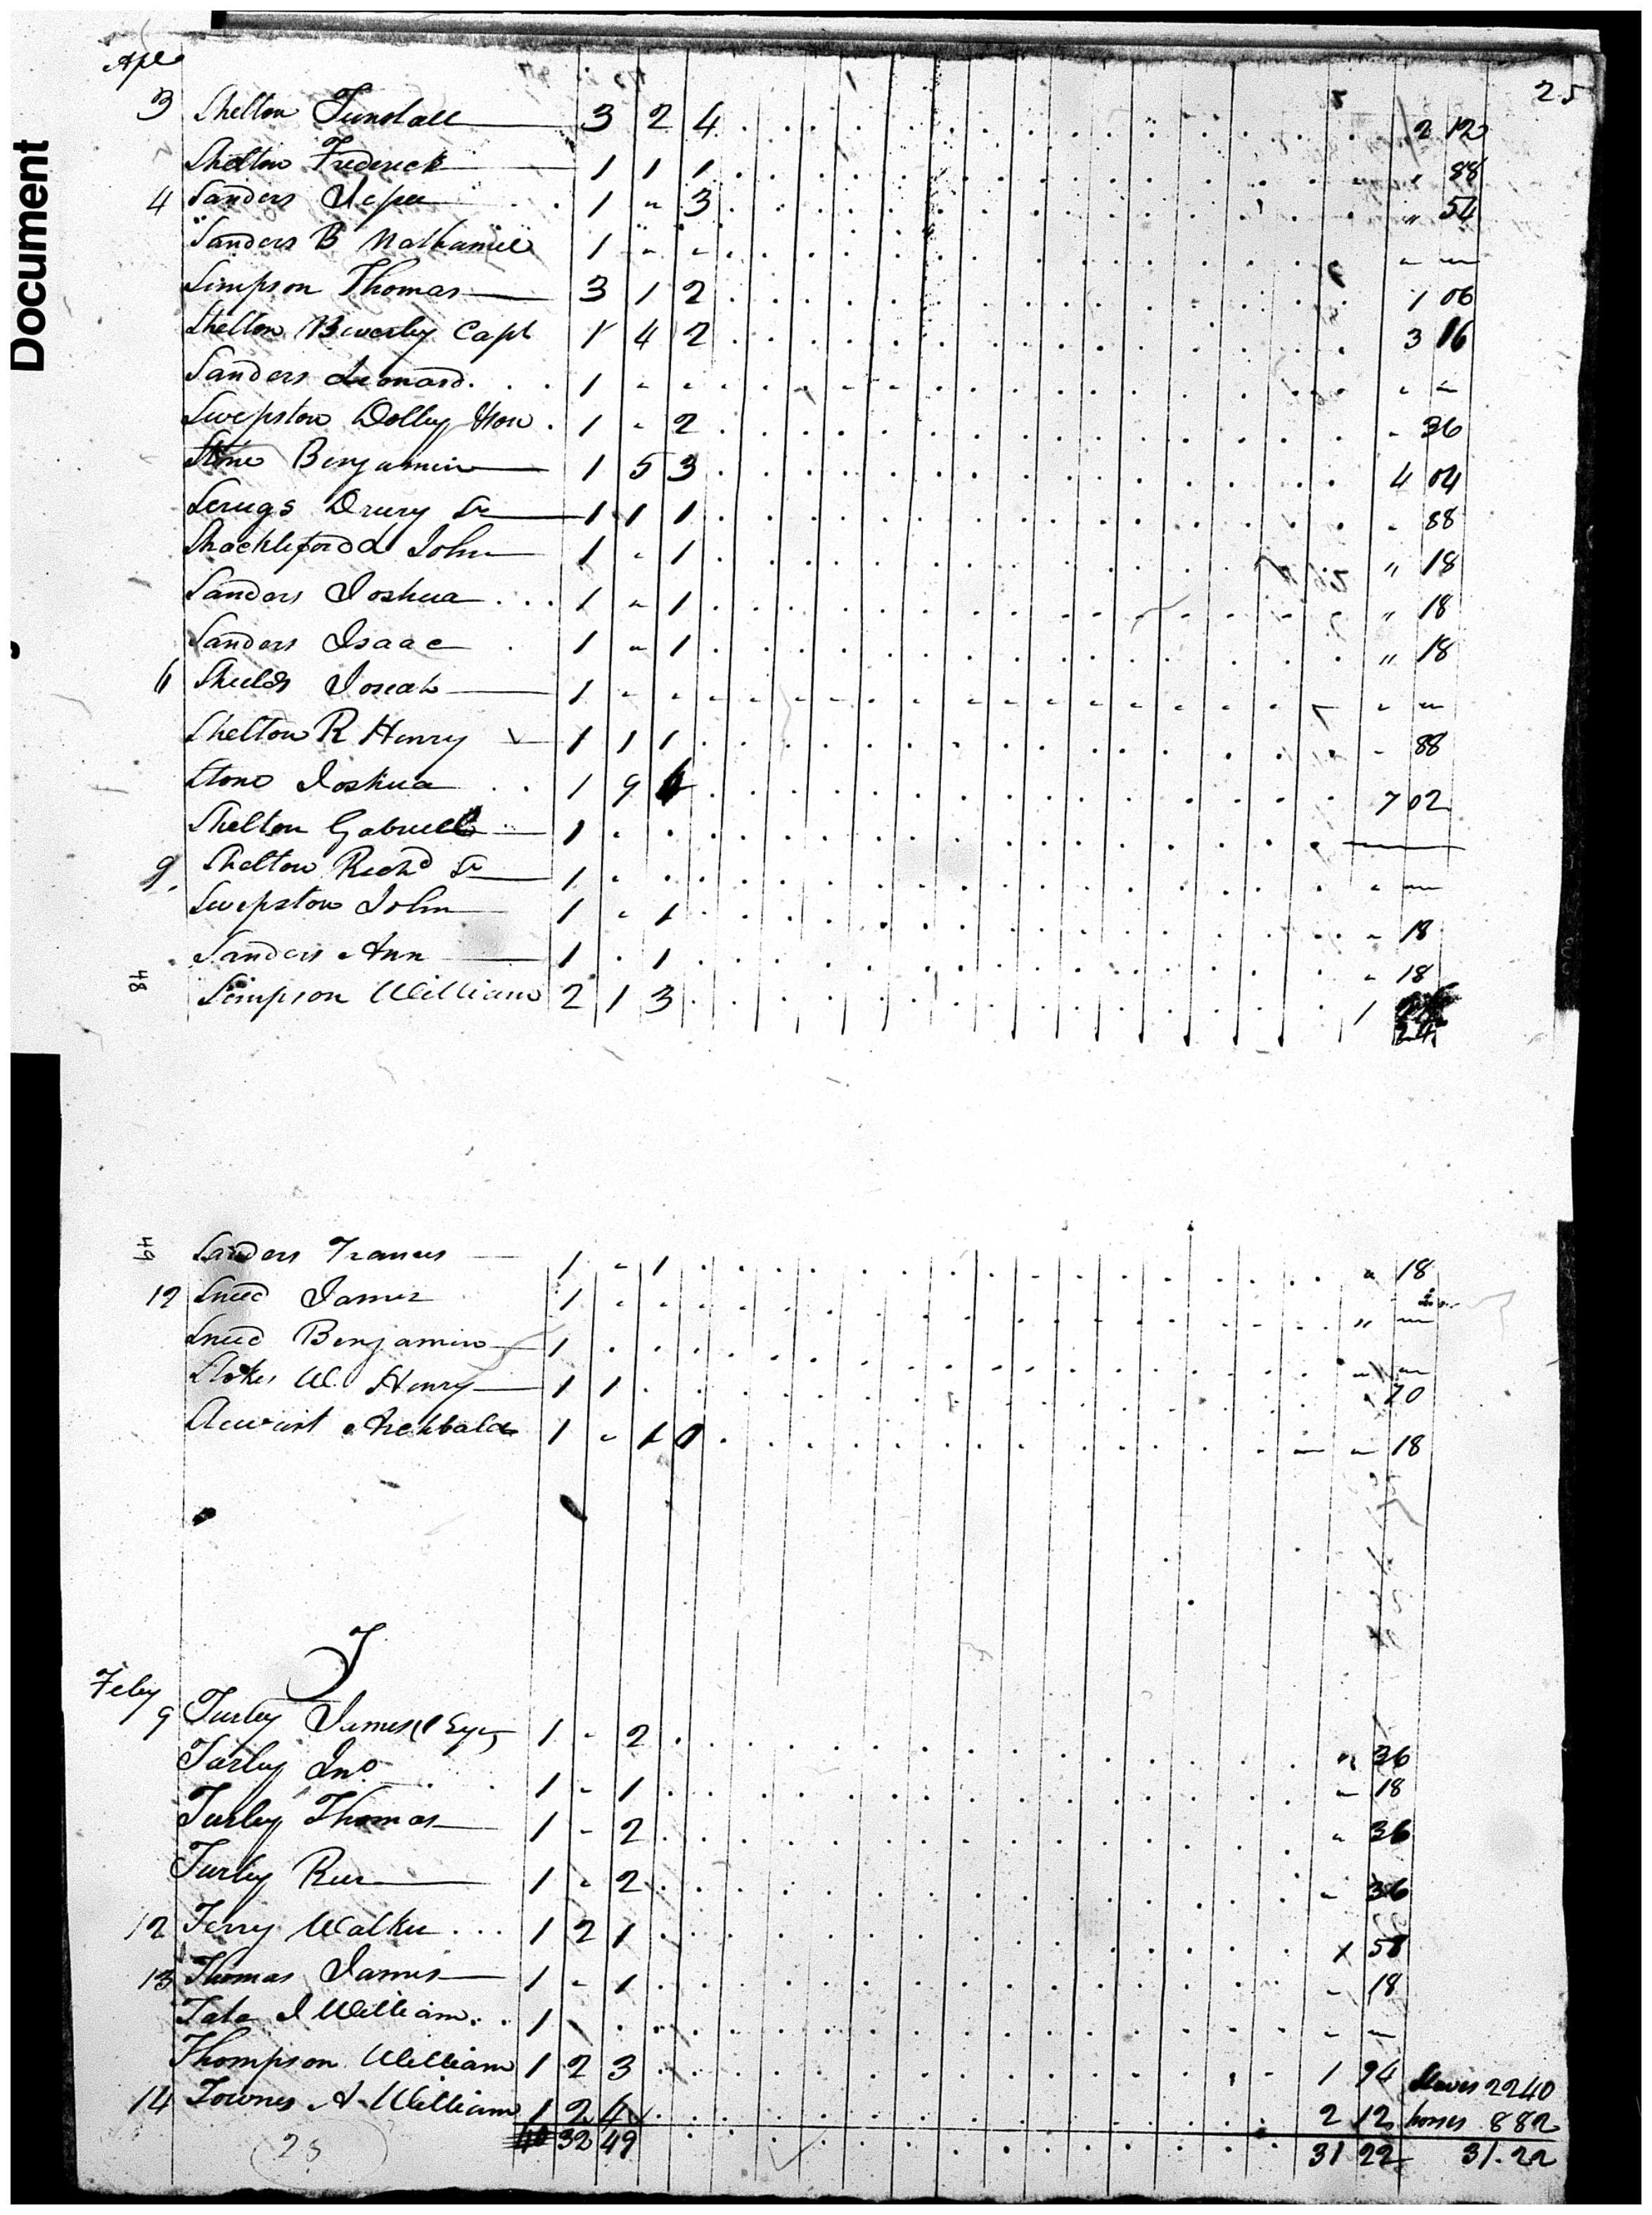 Document
25
Apl
3 Shelton Tunstall 3 2 4 2 12
Shelton Frederick 1 1 1 " 88
4 Sanders 1 " 3 " 54
Sanders B Nathaniel 1 - - - -
Simpson Thomas 3 1 2 1 06
Shelton Beverley Capt 1 4 2 3 16
Sanders Leonard 1 - - - -
Swepston Dolley 1 - 2 - 36
Stone Benjamin 1 5 3 4 04
Scrugs Drury Sr 1 1 1 - 88
Shackleford John 1 - 1 " 18
Sanders Joshua 1 - 1 " 18
Sanders Isaac 1 - 1 " 18
Shields Josiah 1 - - - -
Shelton R Henry 1 1 1 - 88
Stone Joshua 1 9 4 7 02
Shelton Gabriel 1 -
9 Shelton Richd Sr 1 - - -
Swepston John 1 - 1 - 18
Sanders Ann 1 . 1 - 18
48 Simpson William 2 1 3 1 24
49 Sanders Frances 1 - 1 " 18
12 Sneed James 1 - " -
Sneed Benjamin 1 . " -
Stokes W. Henry 1 1 . 70
Archbald 1 - 1 - 18
T
Feby
9 Turley James 1 - 2 " 36
Turley Jno 1 - 1 - 18
Turley Thomas 1 - 2 " 36
Turley 1 - 2 - 36
12 Terry Walker 1 2 1 1 58
13 Thomas James 1 - 1 - 18
Tate J William 1 - -
Thompson William 1 2 3 1 94 Slaves 2240
14 Townes A William 1 2 4 2 12 horses 882
40 32 49 31 22 31.22
25